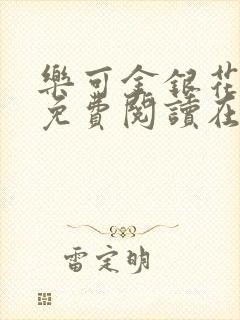 樂可金銀花
免費閱讀在
雷定明